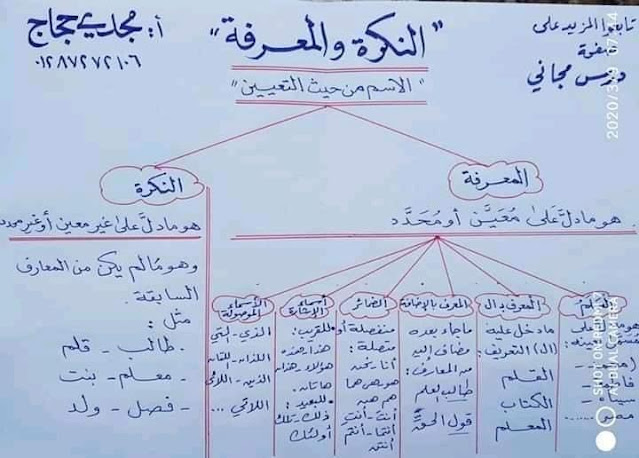 تابعوا المزيد على
صفوة
درس مجاني
"النكرة والمعرفة"
"الاسم من حيث التعيين"
أ: مجدي حجاج
٠١٢٨٧٢٧٢١٠٦
المعرفة
هو ما دلَّ على مُعَيَّن أو مُحَدَّد
العلم
هو ما دل على
مسمى بعينه:
سيناء
مصر ......
المعرف بـ ال
ما دخل عليه
(ال) التعريف:
القلم
الكتاب
المعلم
المعرف بالإضافة
ما جاء بعده
مضاف إليه
من المعارف:
طالب علم
قول الحق
الضمائر
منفصلة أو
متصلة:
أنا - نحن
هو هي هما
هم هن
أنتَ - أنتِ
أنتما - أنتم
أنتن
أسماء الإشارة
للقريب:
هذا - هذه
هؤلاء - هذان
هاتان.
للبعيد:
ذلك - تلك
أولئك
الأسماء الموصولة
الذي - التي
اللذان - اللتان
الذين - اللائي
اللاتي ...
النكرة
هو ما دلَّ على غير معين أو غير محدد
وهو ما لم يكن من المعارف
السابقة.
مثل:
طالب - قلم
- معلم - بنت
- فصل - ولد
2020/3/29 07:14
SHOT ON REDMI 7
AI DUAL CAMERA